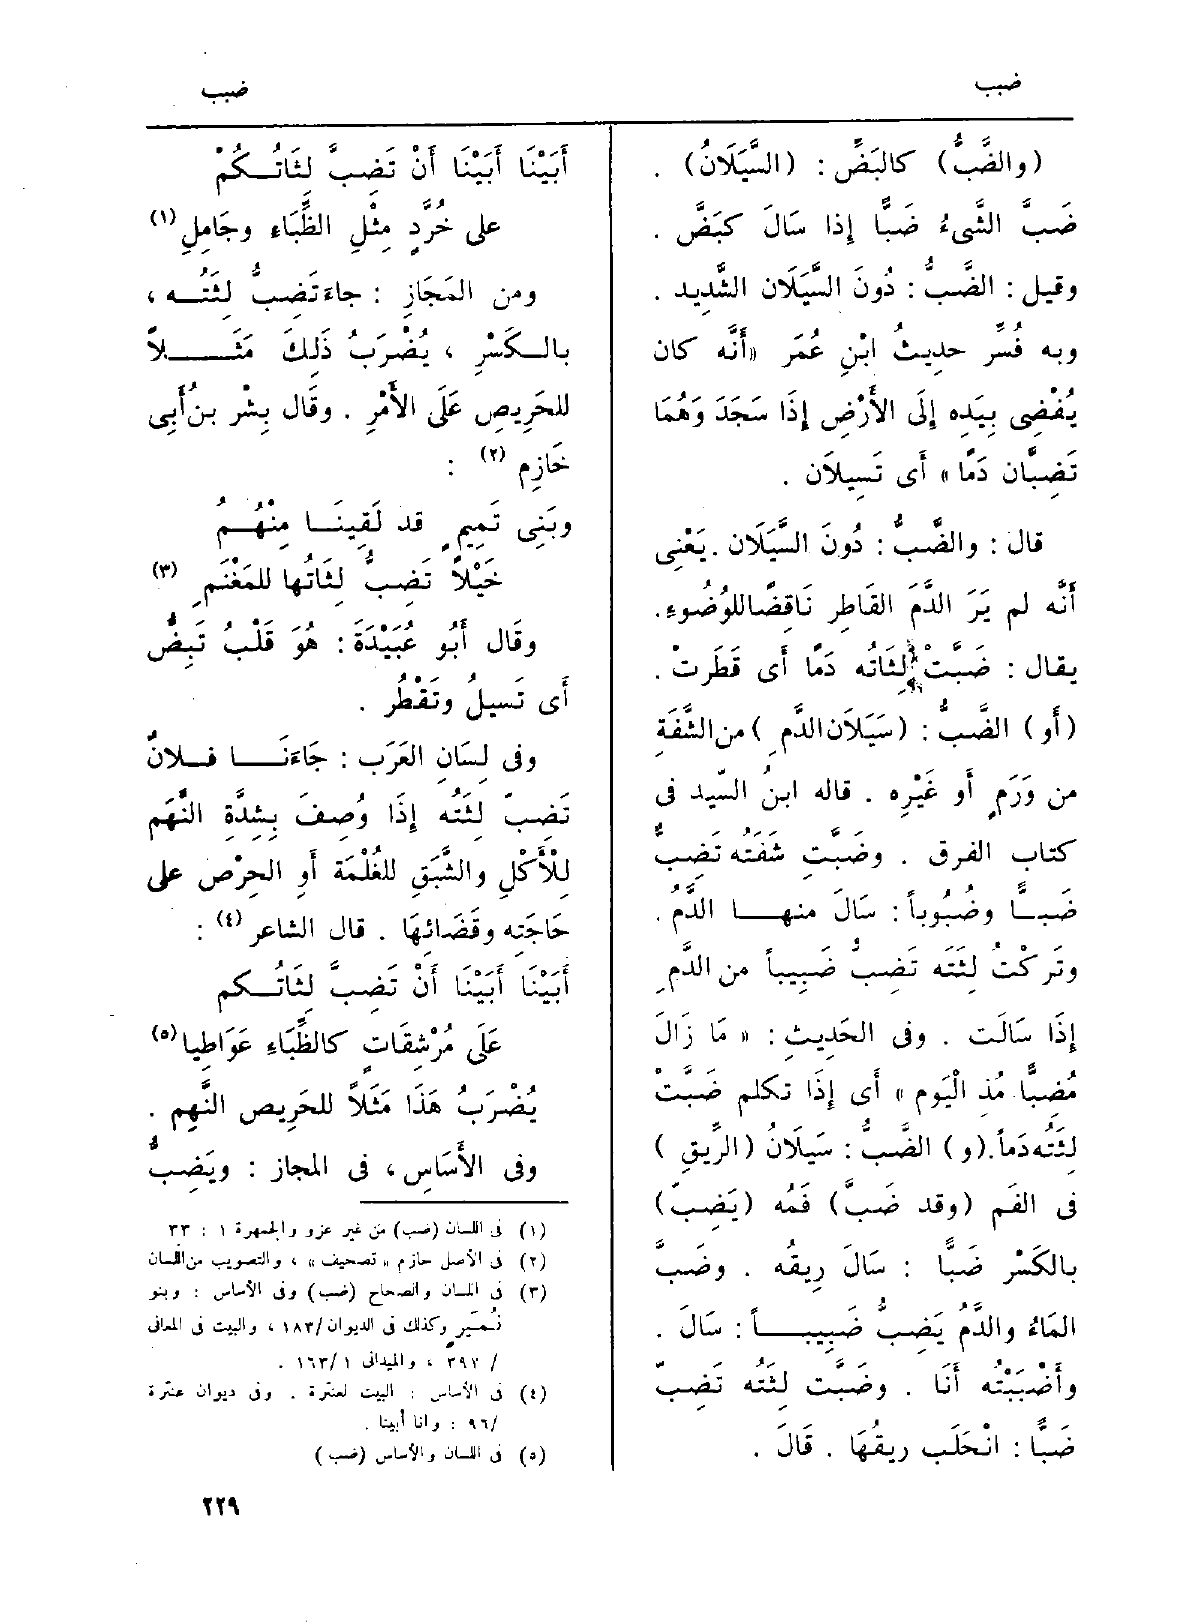 ضبب
ضبب
(والضَّبُّ) كالبَضِّ : (السَّيَلَانُ) .
ضَبَّ الشَّىءُ ضَبًّا إذا سَالَ كبَضَّ .
وقيل : الضَّبُّ : دُونَ السَّيَلَان الشَّديد .
وبه فُسِّر حديثُ ابْنِ عُمَر «أَنَّه كان
يُفْضِى بيَدِه إلَى الأَرْضِ إذَا سَجَدَ وَهُمَا
تَضِبَّان دَمًا » أَى تَسِيلاَن .
قال : والضَّبُّ : دُونَ السَّيَلَان . يَعْنِى
أَنَّه لم يَرَ الدَّمَ القَاطِر نَاقِضًا للوُضُوءِ.
يقال : ضَبَّتْ لِثَاتُه دَمًا أَى قَطَرتْ .
(أَو) الضَّبُّ : (سَيَلَان الدَّمِ ) من الشَّفَةِ
من وَرَمٍ أَو غَيْرِه . قاله ابنُ السِّيد فى
كتاب الفرق . وضَبَّت شَفَتُه تَضِبُّ
ضَبًّا وضُبُوباً : سَالَ منها الدَّمُ .
وتَركْتُ لِثَتَه تَضِبُّ ضَبِيباً من الدَّمِ
إذَا سَالَت . وفى الحَدِيثِ : « مَا زَالَ
مُضِبًّا مُذ الْيَوْم » أَى إذَا تكلم ضَبَّتْ
لِثَتُه دَماً. (و) الضَّبُّ : سَيَلَانُ (الرِّيقِ )
فى الفَم (وقد ضَبَّ) فَمُه (يَضِبّ)
بالكَسْر ضَبًّا : سَالَ رِيقُه . وضَبَّ
المَاءُ والدَّمُ يَضِبُّ ضَبِيباً : سَالَ .
وأَضْبَبْتُه أَنَا . وضَبَّت لِثَتُه تَضِبّ
ضَبًّا : انْحَلَب رِيقُهَا . قَالَ .
أَبَيْنَا أَبَيْنَا أَنْ تَضِبَّ لِثَاتُكُمْ
على خُرَّدٍ مِثْلِ الظِّبَاءِ وجَامِلِ (١)
ومن المَجَازِ : جاءَ تَضِبُّ لِثَتُه ،
بالكَسْرِ ، يُضْرَبُ ذَلِكَ مَثَلاً
للحَرِيصِ عَلَى الأَمْرِ . وقَال بِشْر بنُ أَبِى
خَازِم (٢) :
وبَنِى تَمِيمٍ قد لَقِينَا مِنْهُمُ
خَيْلاً تَضِبُّ لِثَاتُها للمَغْنَمِ (٣)
وقَال أَبُو عُبَيْدَةَ : هُوَ قَلْبُ تَبِضُّ
أَى تَسِيلُ وتَقْطُر .
وفى لِسَانِ العَرَب : جَاءَنَا فلانٌ
تَضِبّ لِثَتُه إذَا وُصِفَ بِشِدَّةِ النَّهَم
لِلْأَكْلِ والشَّبَق للغُلْمَة أَوِ الحِرْص على
حَاجَتِه وقَضَائِهَا . قال الشاعر (٤) :
أَبَيْنَا أَبَيْنَا أَنْ تَضِبَّ لِثَاتُكم
عَلَى مُرْشِقَاتٍ كالظِّبَاءِ عَوَاطِيا (٥)
يُضْرَبُ هَذَا مَثَلاً للحَرِيص النَّهِم .
وفى الأَسَاسِ ، فى المجاز : ويَضِبُّ
(١) فى اللسان (ضبب) من غير عزو والجمهرة ١ : ٣٣
(٢) فى الأصل حازم « تصحيف » ، والتصويب من اللسان
(٣) فى اللسان والصحاح (ضبب) وفى الأساس : وبنو
نُمَيرٍ وكذلك فى الديوان /١٨٣ ، والبيت فى المعانى
/ ٣٩٧ ، والميدانى ١ /١٦٣ .
(٤) فى الأساس : البيت لعنترة . وفى ديوان عنترة
/٩٦ : وانا أبينا .
(٥) فى اللسان والأساس (ضبب )
٢٢٩